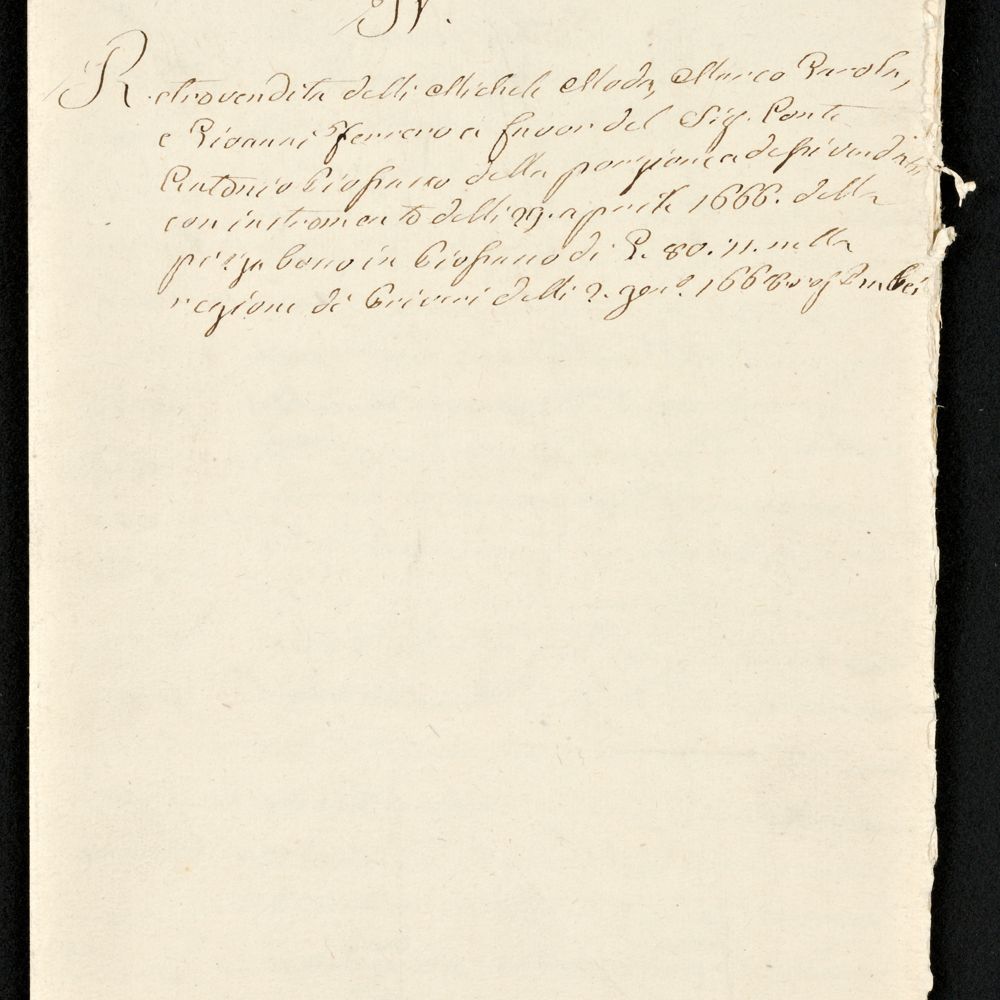 N.
Retrovendita delli Michele Moda, Marco Parola,
e Gioanni Ferrero a favor del Sig. Conte
Antonio della porzione a dessi venduta
con instromento delli 29. aprile 1666. della
pezza bosco in di G. 80. 11. nella
regione de delli 2. gen.o 1668.